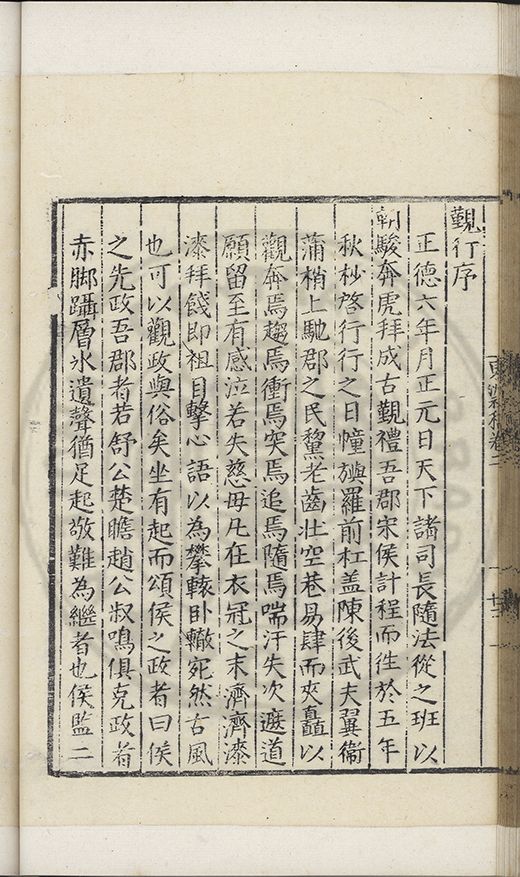 覲行序
正德六年月正元日天下諸司長隨法從之班以
朝駿奔虎拜成古覲禮吾郡宋侯計程而徃於五年
秋杪啓行行之日幢旟羅前杠盖陳後武夫翼衞
蒲梢上馳郡之民黧老齒壯空巷易肆而夾矗以
觀奔焉趨焉衝焉突焉追焉隨焉喘汗失次遮道
願留至有感泣若失慈母凡在衣冠之末濟濟漆
漆拜餞即祖目擊心語以為攀轅卧轍宛然古風
也可以觀政與俗矣坐有起而頌侯之政者曰侯
之先政吾郡者若舒公楚瞻趙公叔鳴俱克政者
赤脚躡層氷遺聲猶足起敬難為繼者也侯監二
卷二